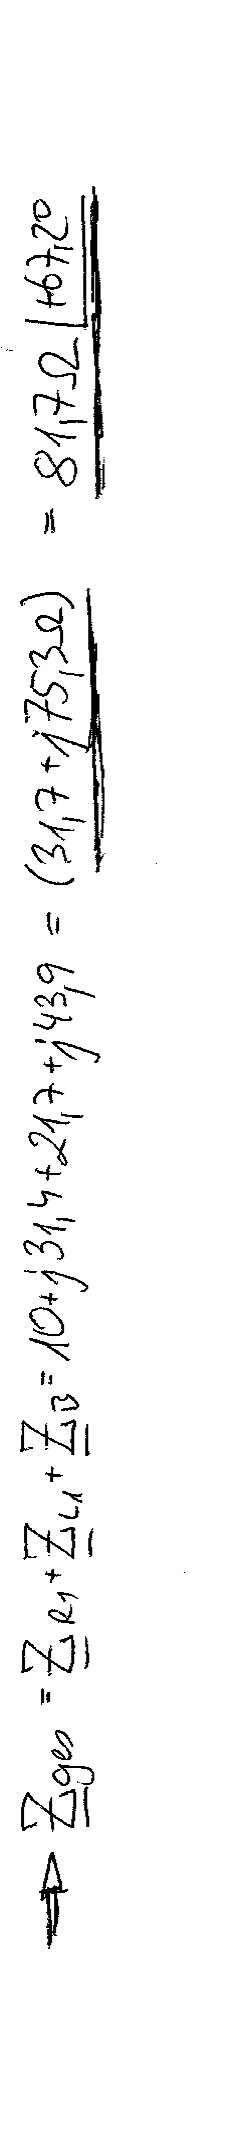 ⇒ Z_ges = Z_R1 + Z_L1 + Z_B = 10+j31,4+21,7+j43,9 = (31,7+j75,3Ω) = 81,7Ω ∠+67,2°